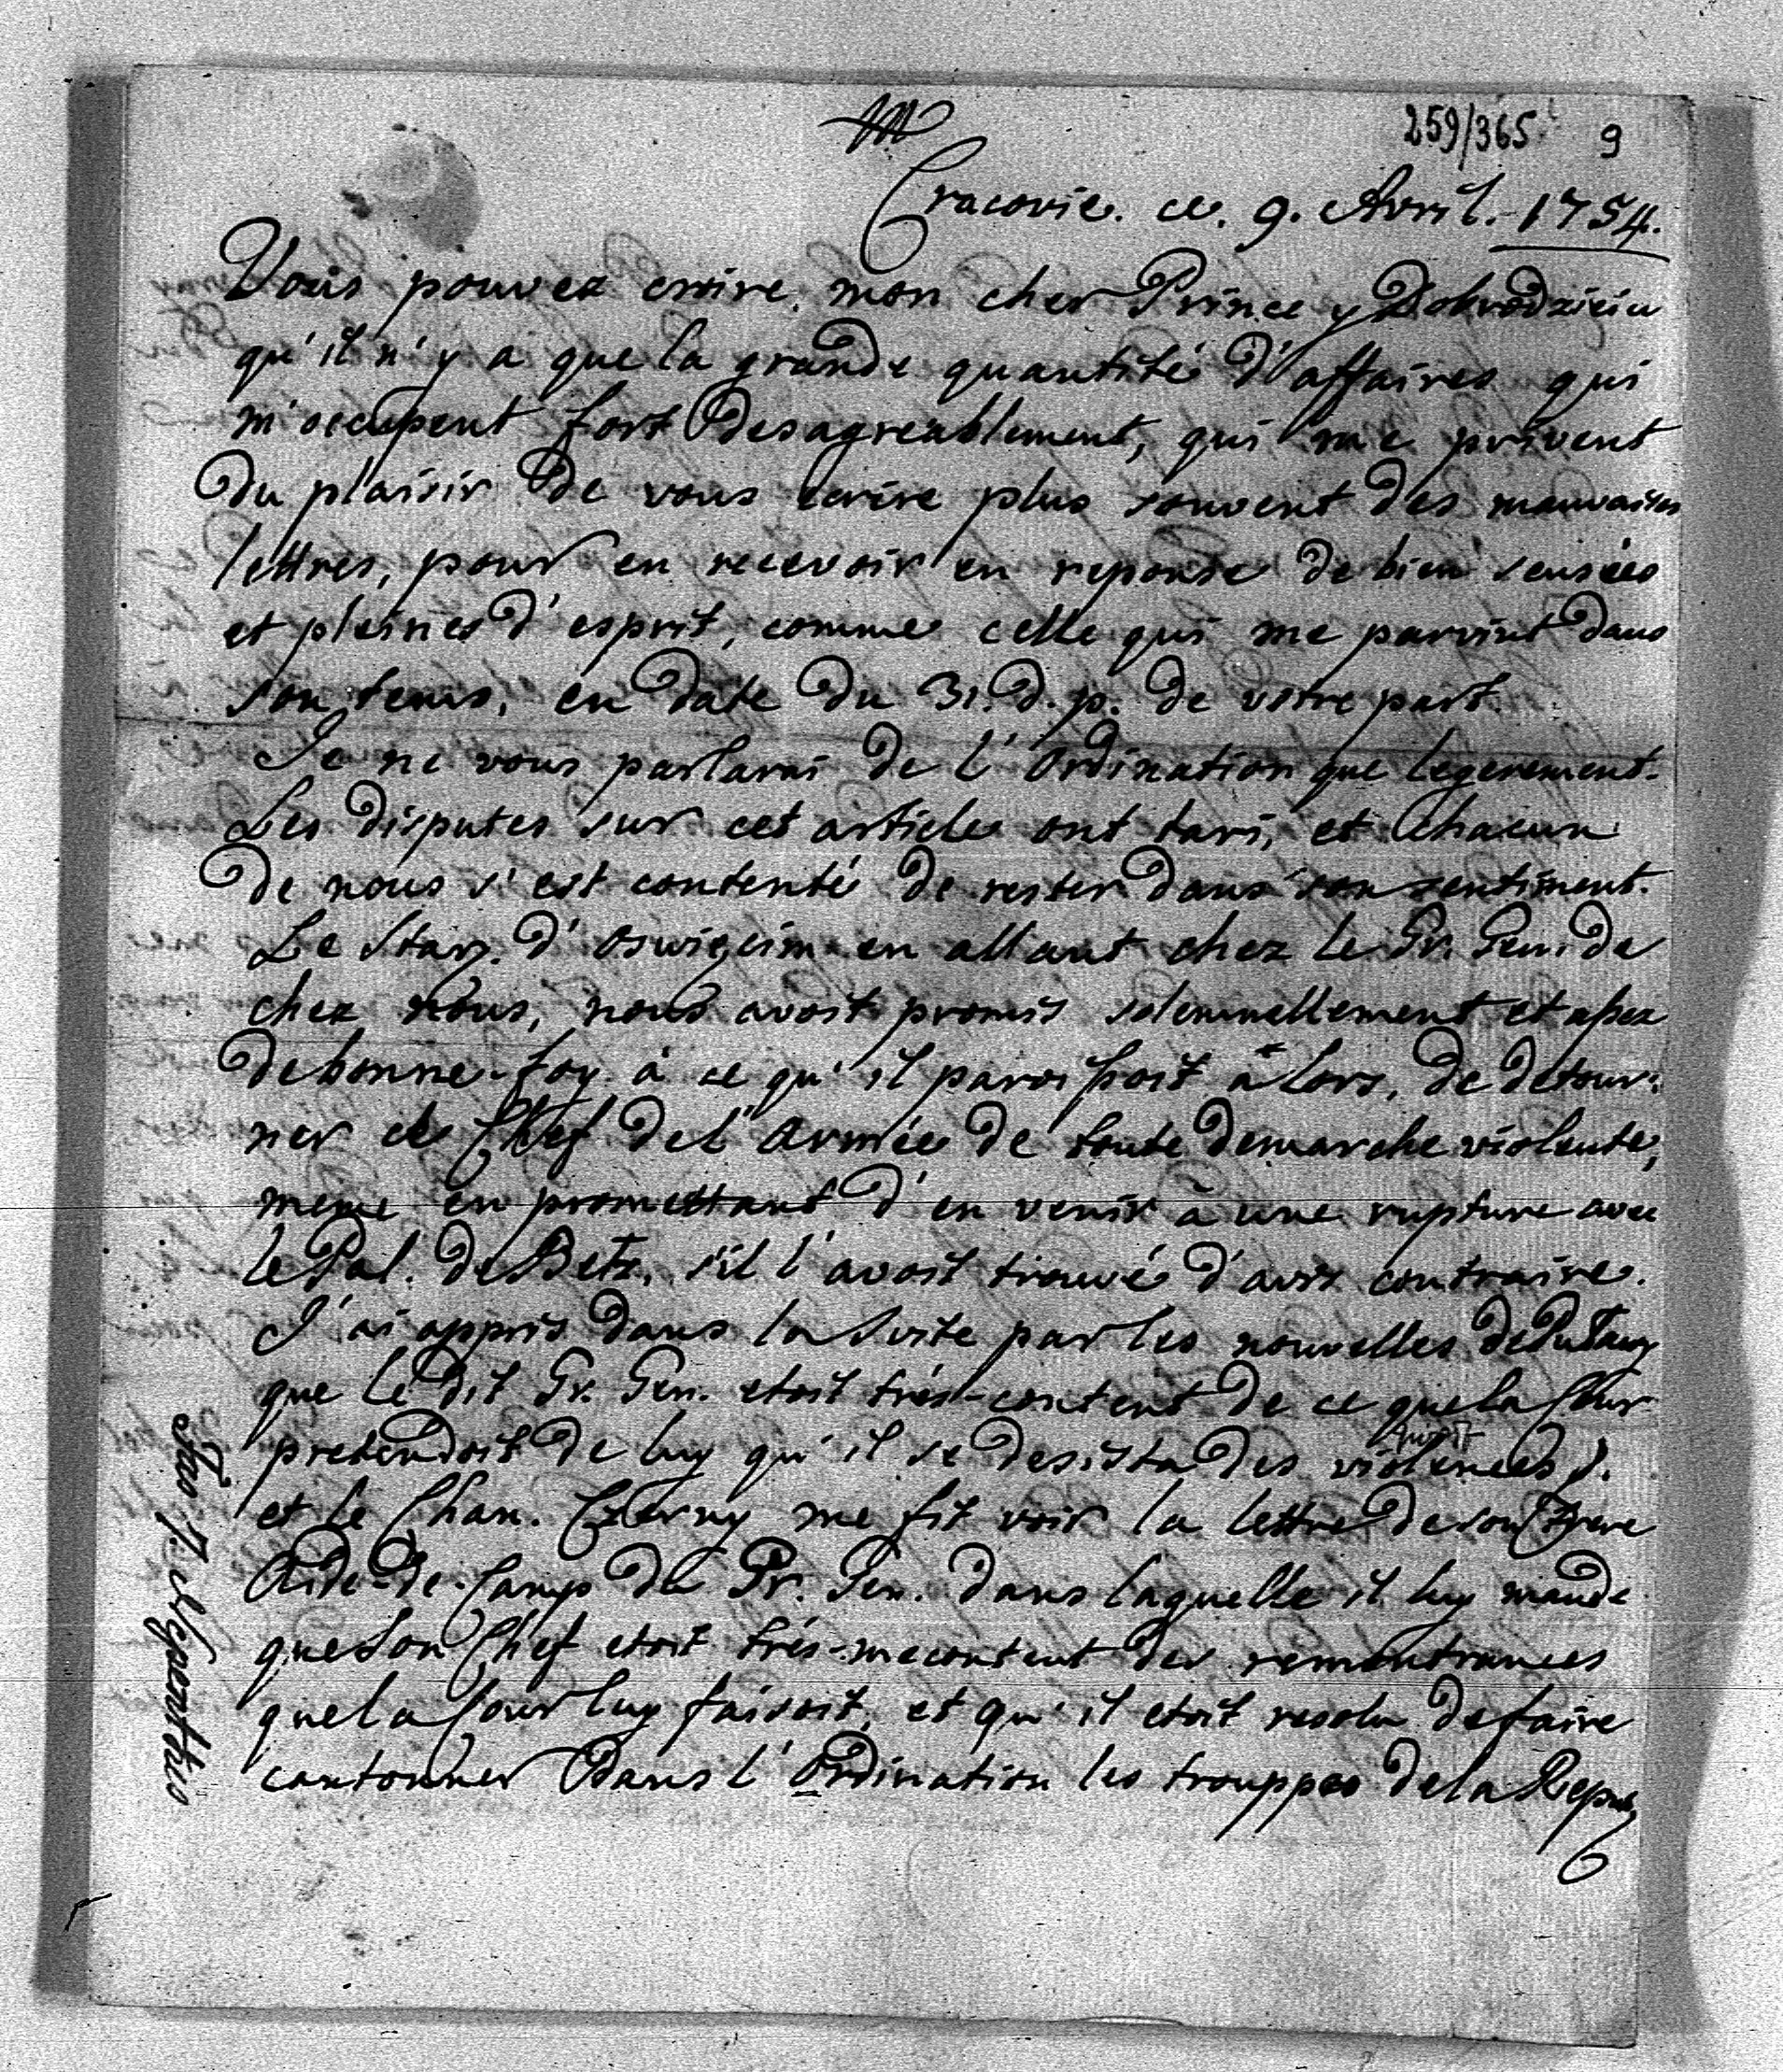 259/365 9
Cracovie. ce. 9. Avril. 1754.
Vous pouvez croire, mon cher Prince y Dobrodzieiu
qu'il n'y a que la grande quantité d'affaires qui
m'occupent fort desagreablement, qui me privent
du plaisir de vous ecrire plus souvent des mauvaises
lettres, pour en recevoir en reponse de bien sensées
et pleines d'esprit, comme celle qui me parvint dans
son tems, en date du 31. d. p. de votre part.
Je ne vous parlerai de l'Ordination que legerement.
Les disputes sur cet article ont tari, et chacun
de nous s'est contenté de rester dans son sentiment.
Le Star. d'Oswięcim en allant chez le Gr. Gen. de
chez nous, nous avoit promis solemnellement et assez
de bonne-foy à ce qu'il paroissoit alors, de detour-
ner ce Chef de l'Armée de toute demarche violente,
meme en promettant d'en venir à une rupture avec
le Pal. de Betz, s'il l'avoit trouvé d'avis contraire.
J'ai appris dans la suite par les nouvelles de
que le dit Gr. Gen. etoit trés-content de ce que la Cour
pretendoit de luy qu'il se desista des violences
et le Chan. Czerny me fit voir la lettre de son Frere
Aide-de-Camp du Gr. Gen. dans laquelle il luy mande
que son Chef etoit trés-mecontent des remontrances
que la Cour luy faisoit, et qu'il etoit resolu de faire
cantonner dans l'Ordination les trouppes de la Repub